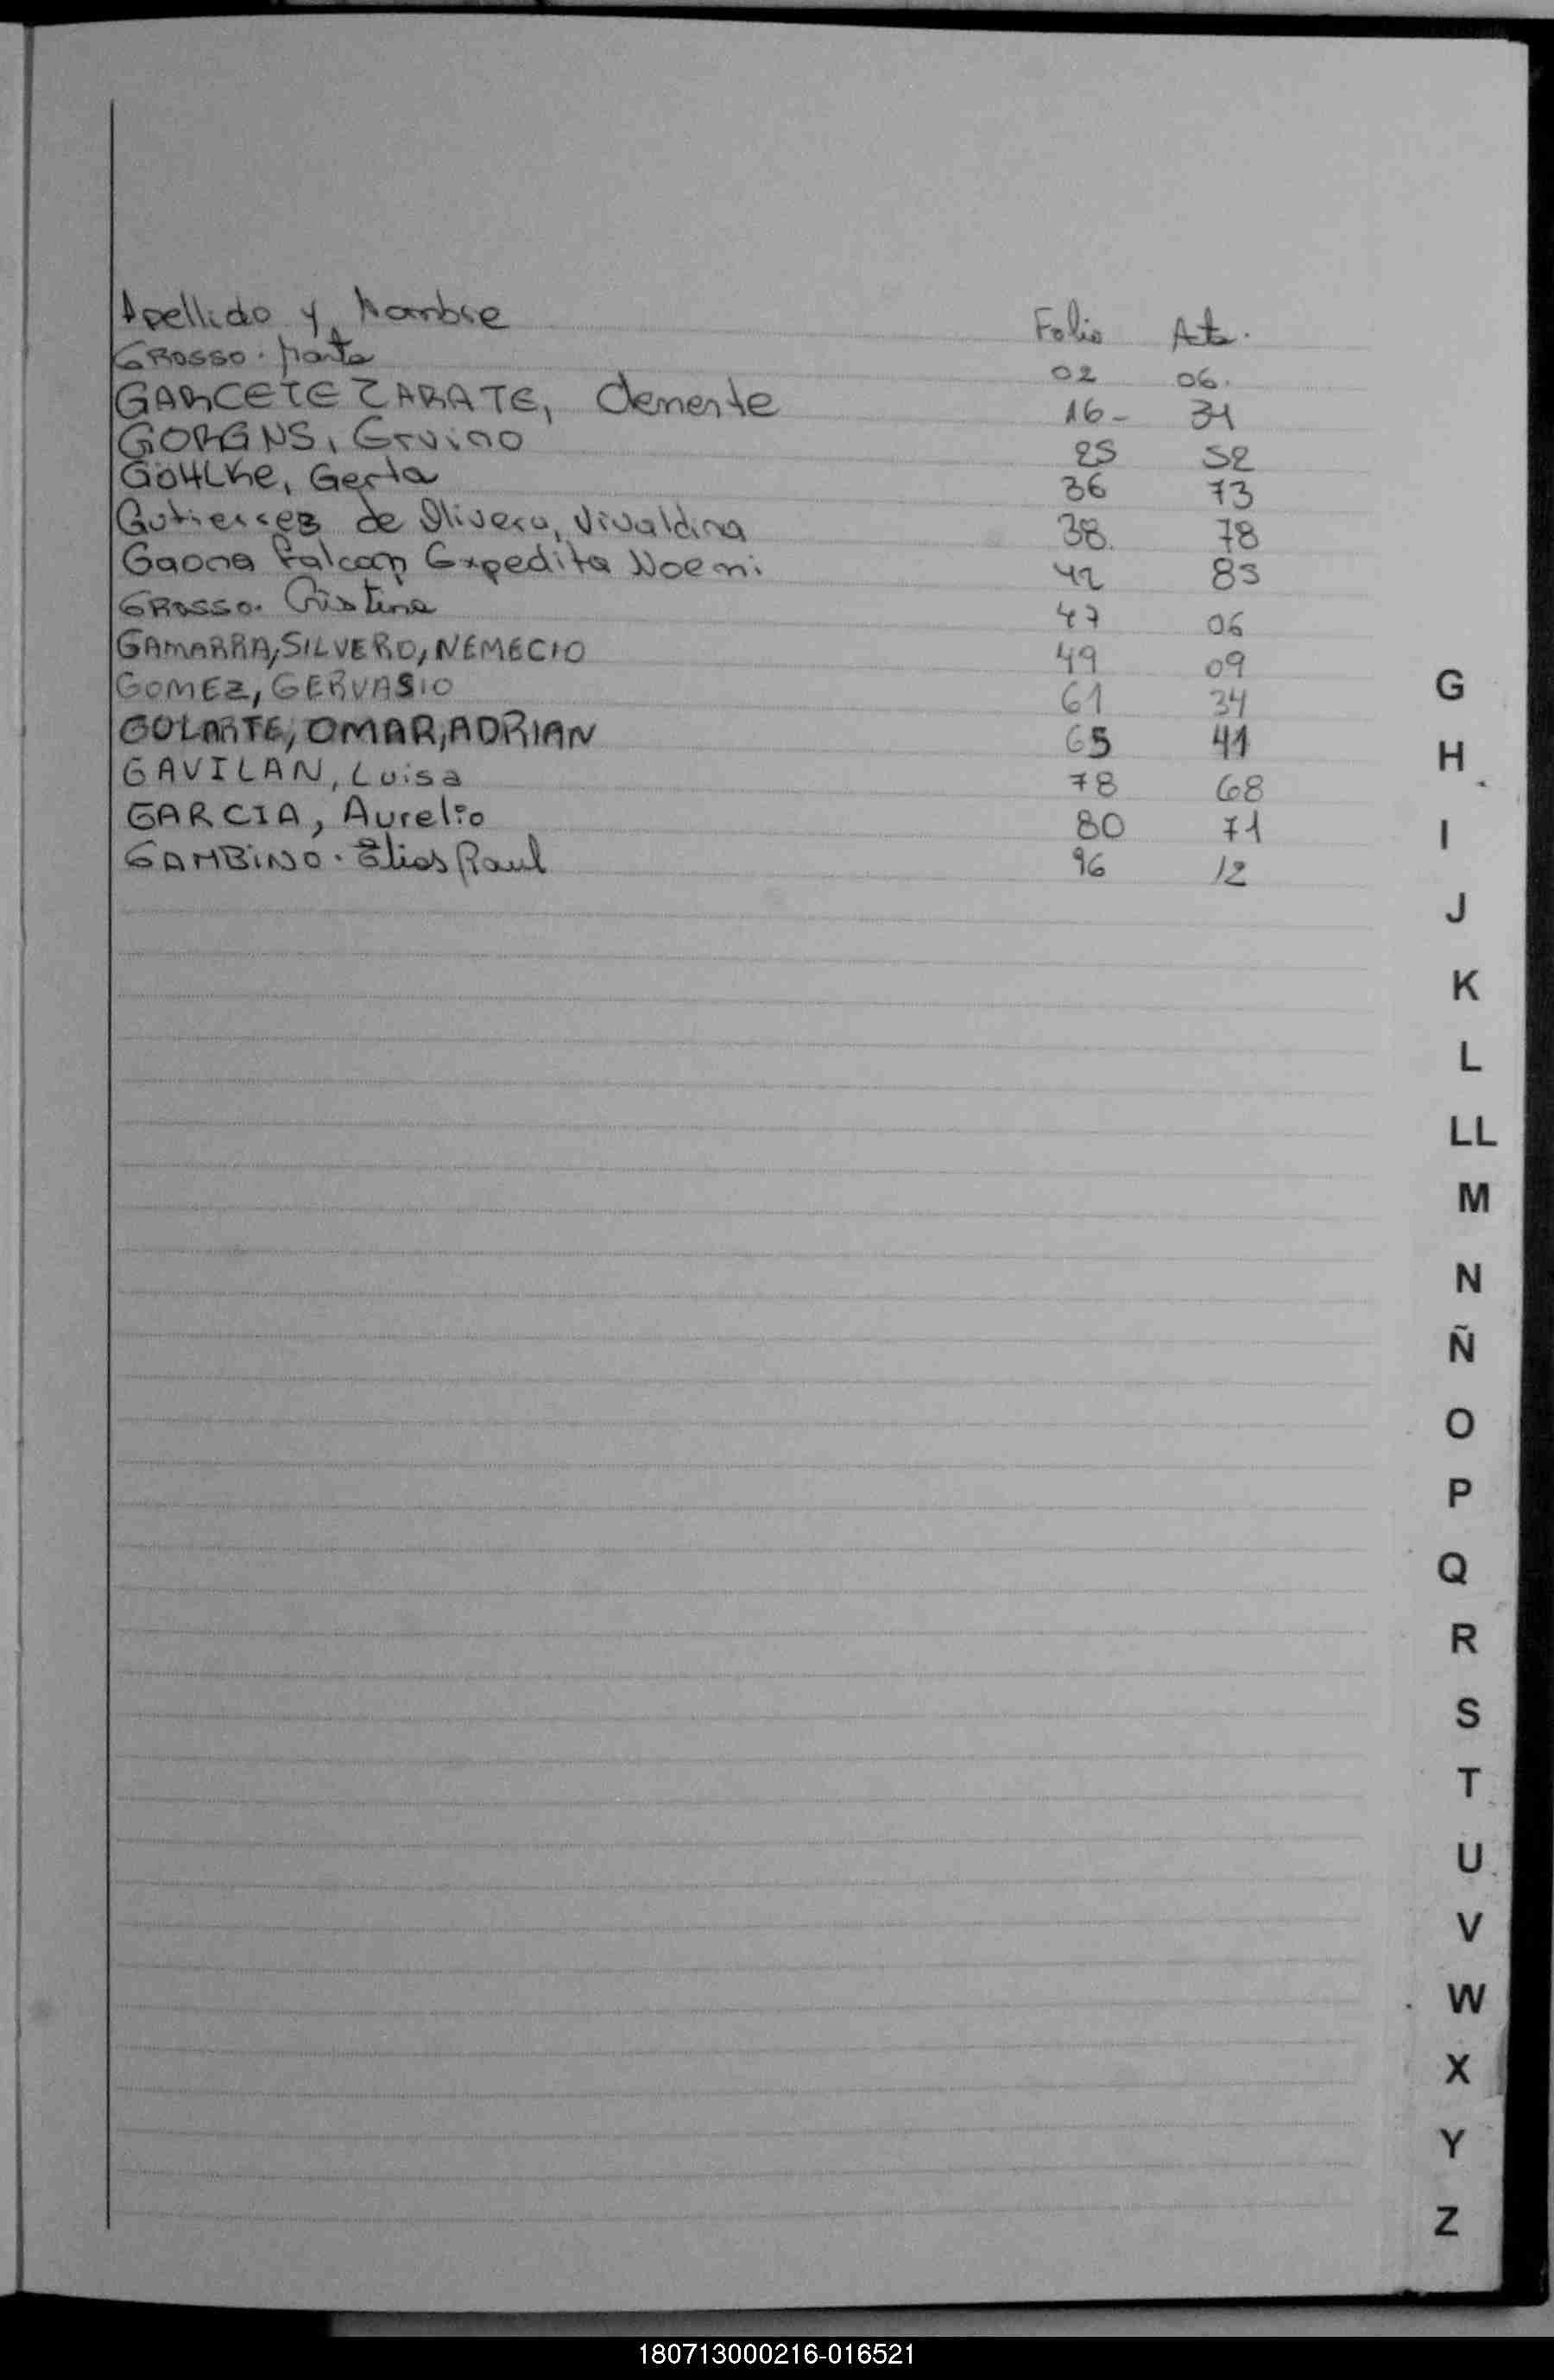 Apellido y Nombre Folio Acta.
GROSSO. Marta 02 06.
GARCETE ZARATE, Clemente 16- 31
GORGNS, Ervino 25 52
Göttlke, Gerta 36 73
Gutierrez de Olivera, Vivaldina 38. 78
Gaona Falcon Expedita Noemi 42 85
GROSSO. Cristina 47 06
GAMARRA, SILVERO, NEMECIO 49 09
GOMEZ, GERVASIO 61 34
GOLARTE, OMAR, ADRIAN 65 41
GAVILAN, Luisa 78 68
GARCIA, Aurelio 80 71
GAMBINO. Elias Raul 96 12
G
H
I
J
K
L
LL
M
N
Ñ
O
P
Q
R
S
T
U
V
W
X
Y
Z
180713000216-016521